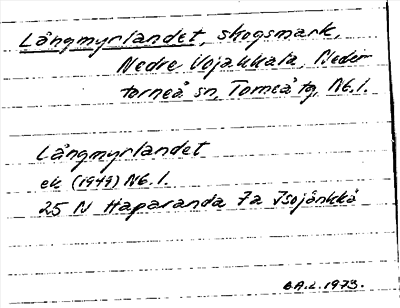 Långmyrlandet, skogsmark,
Nedre Vojakkala, Neder-
torneå sn, Torneå tg, Nb.l.
Långmyrlandet
ek (1949) Nb.l.
25 N Haparanda 7a Isojänkkä
BA.L. 1973.